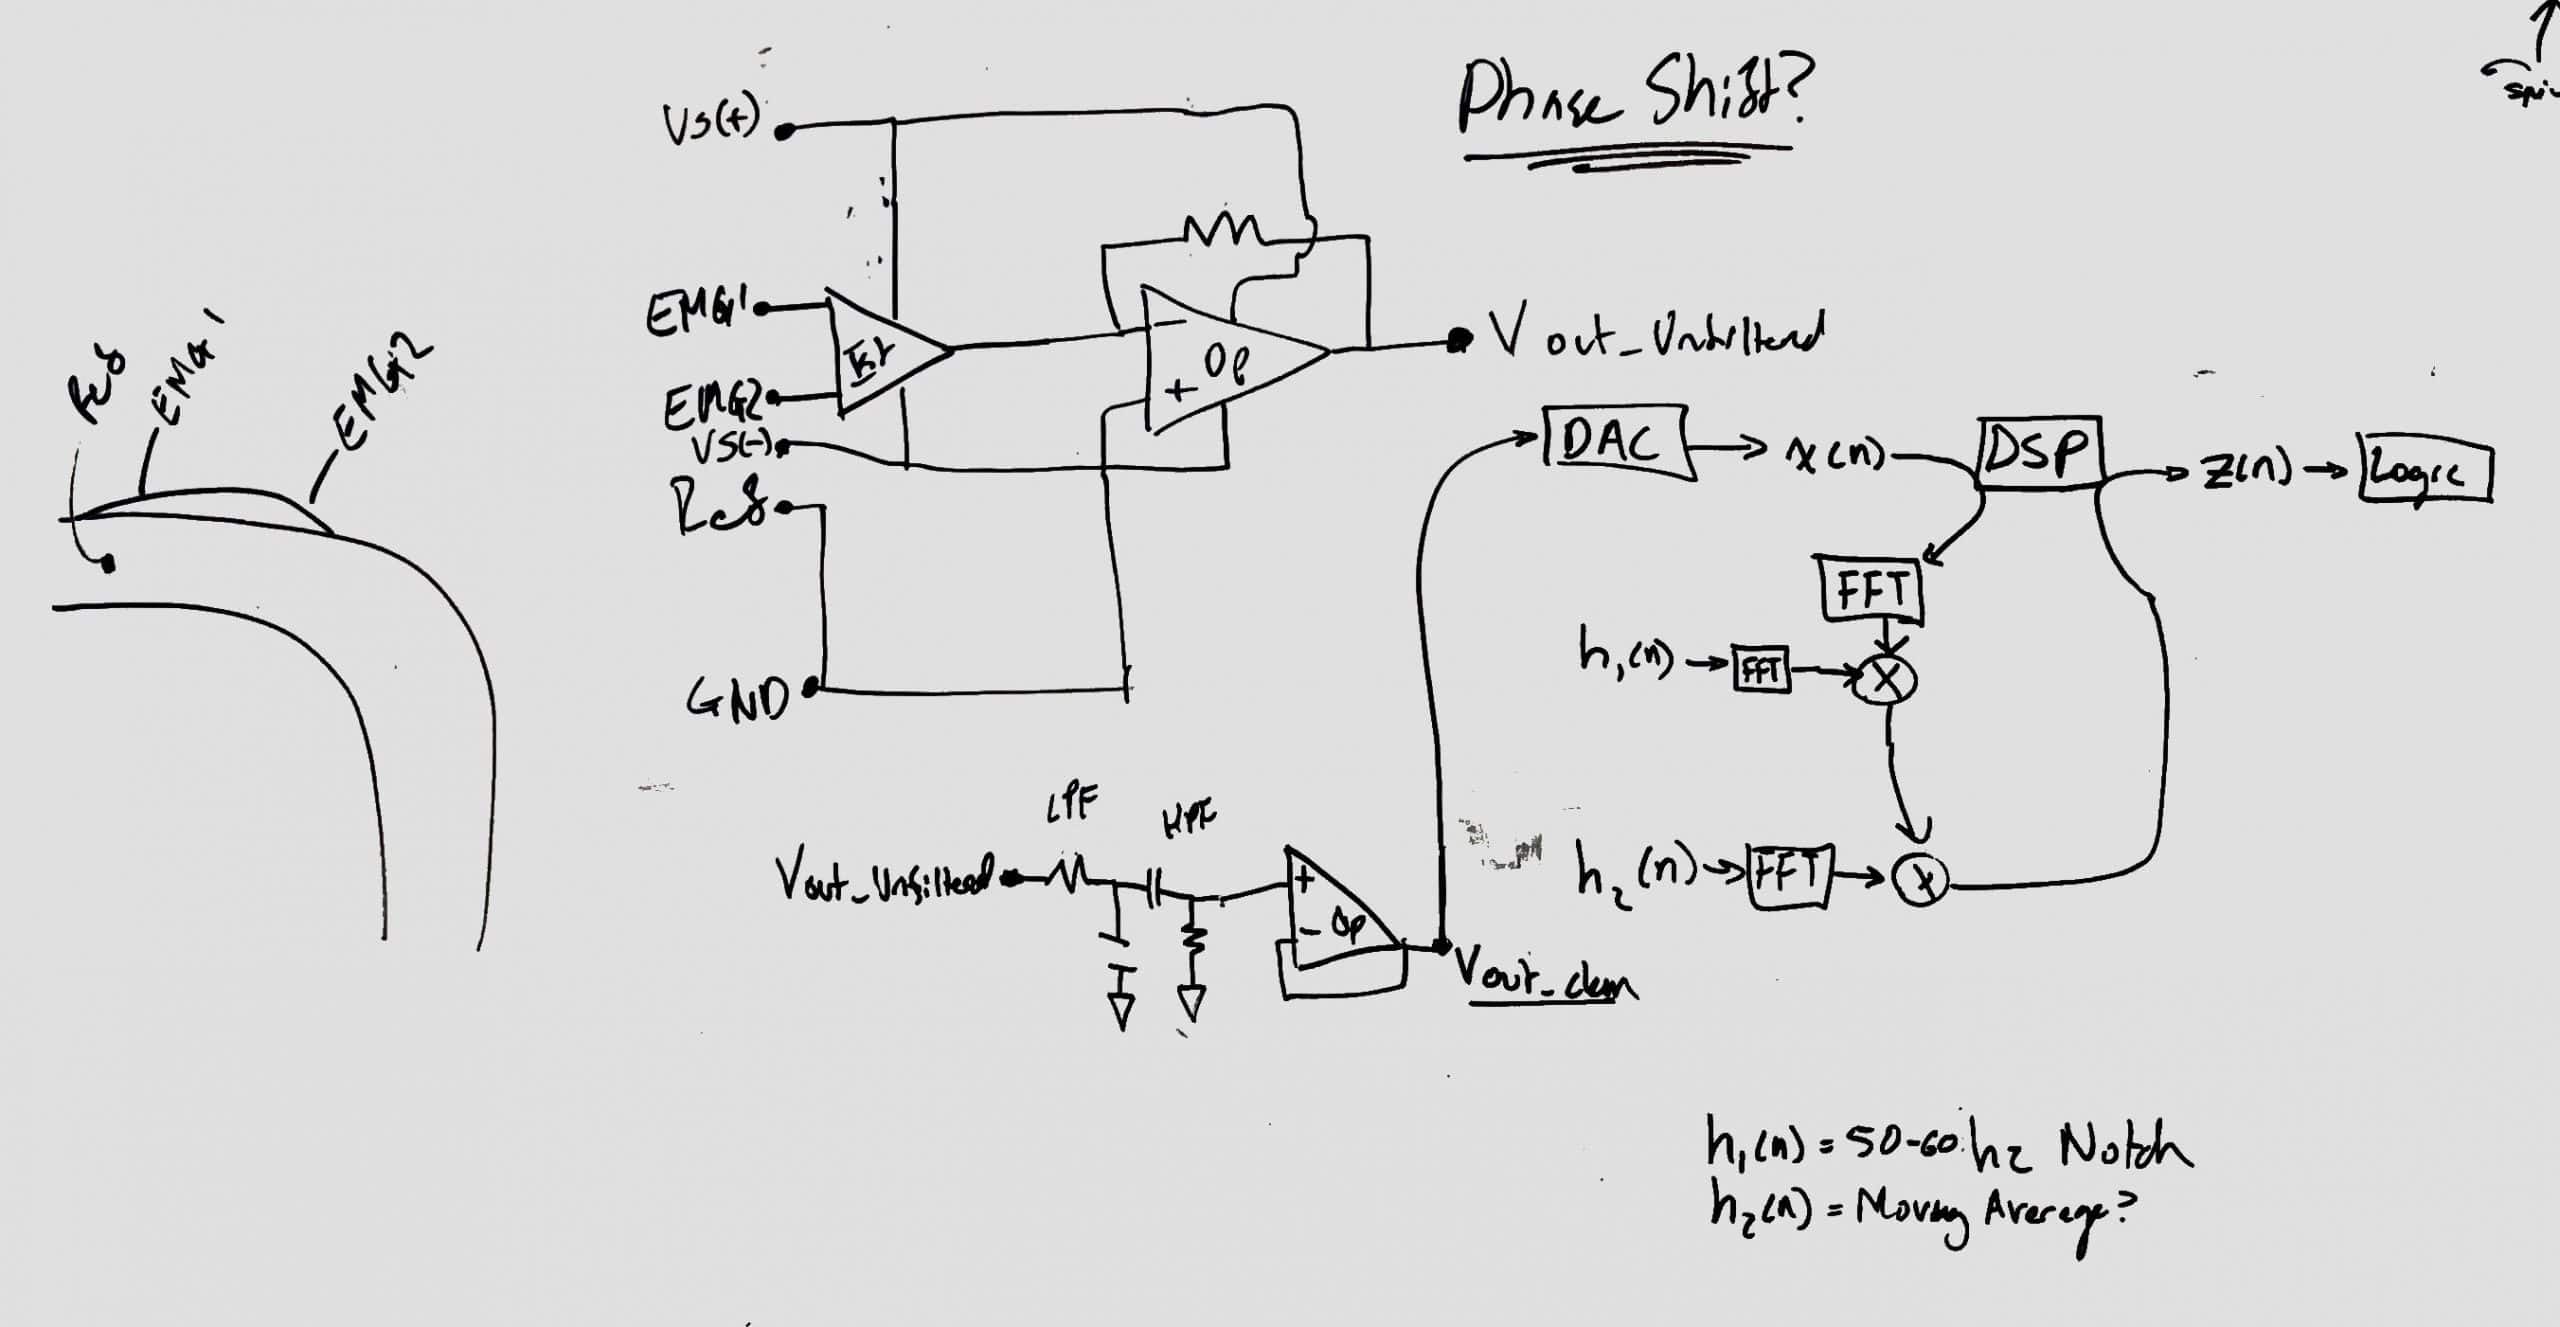 Phase Shift?
Vs(+)
EMG1
EMG2
Vs(-)
Ref
GND
Inst
-
+
Op
Vout_Unfiltered
Ref
EMG1
EMG2
DAC
x(n)
DSP
z(n)
Logic
FFT
h1(n)
FFT
X
h2(n)
FFT
X
Vout_Unfiltered
LPF
HPF
+
-
Op
Vout_clean
h1(n) = 50-60 hz Notch
h2(n) = Moving Average?